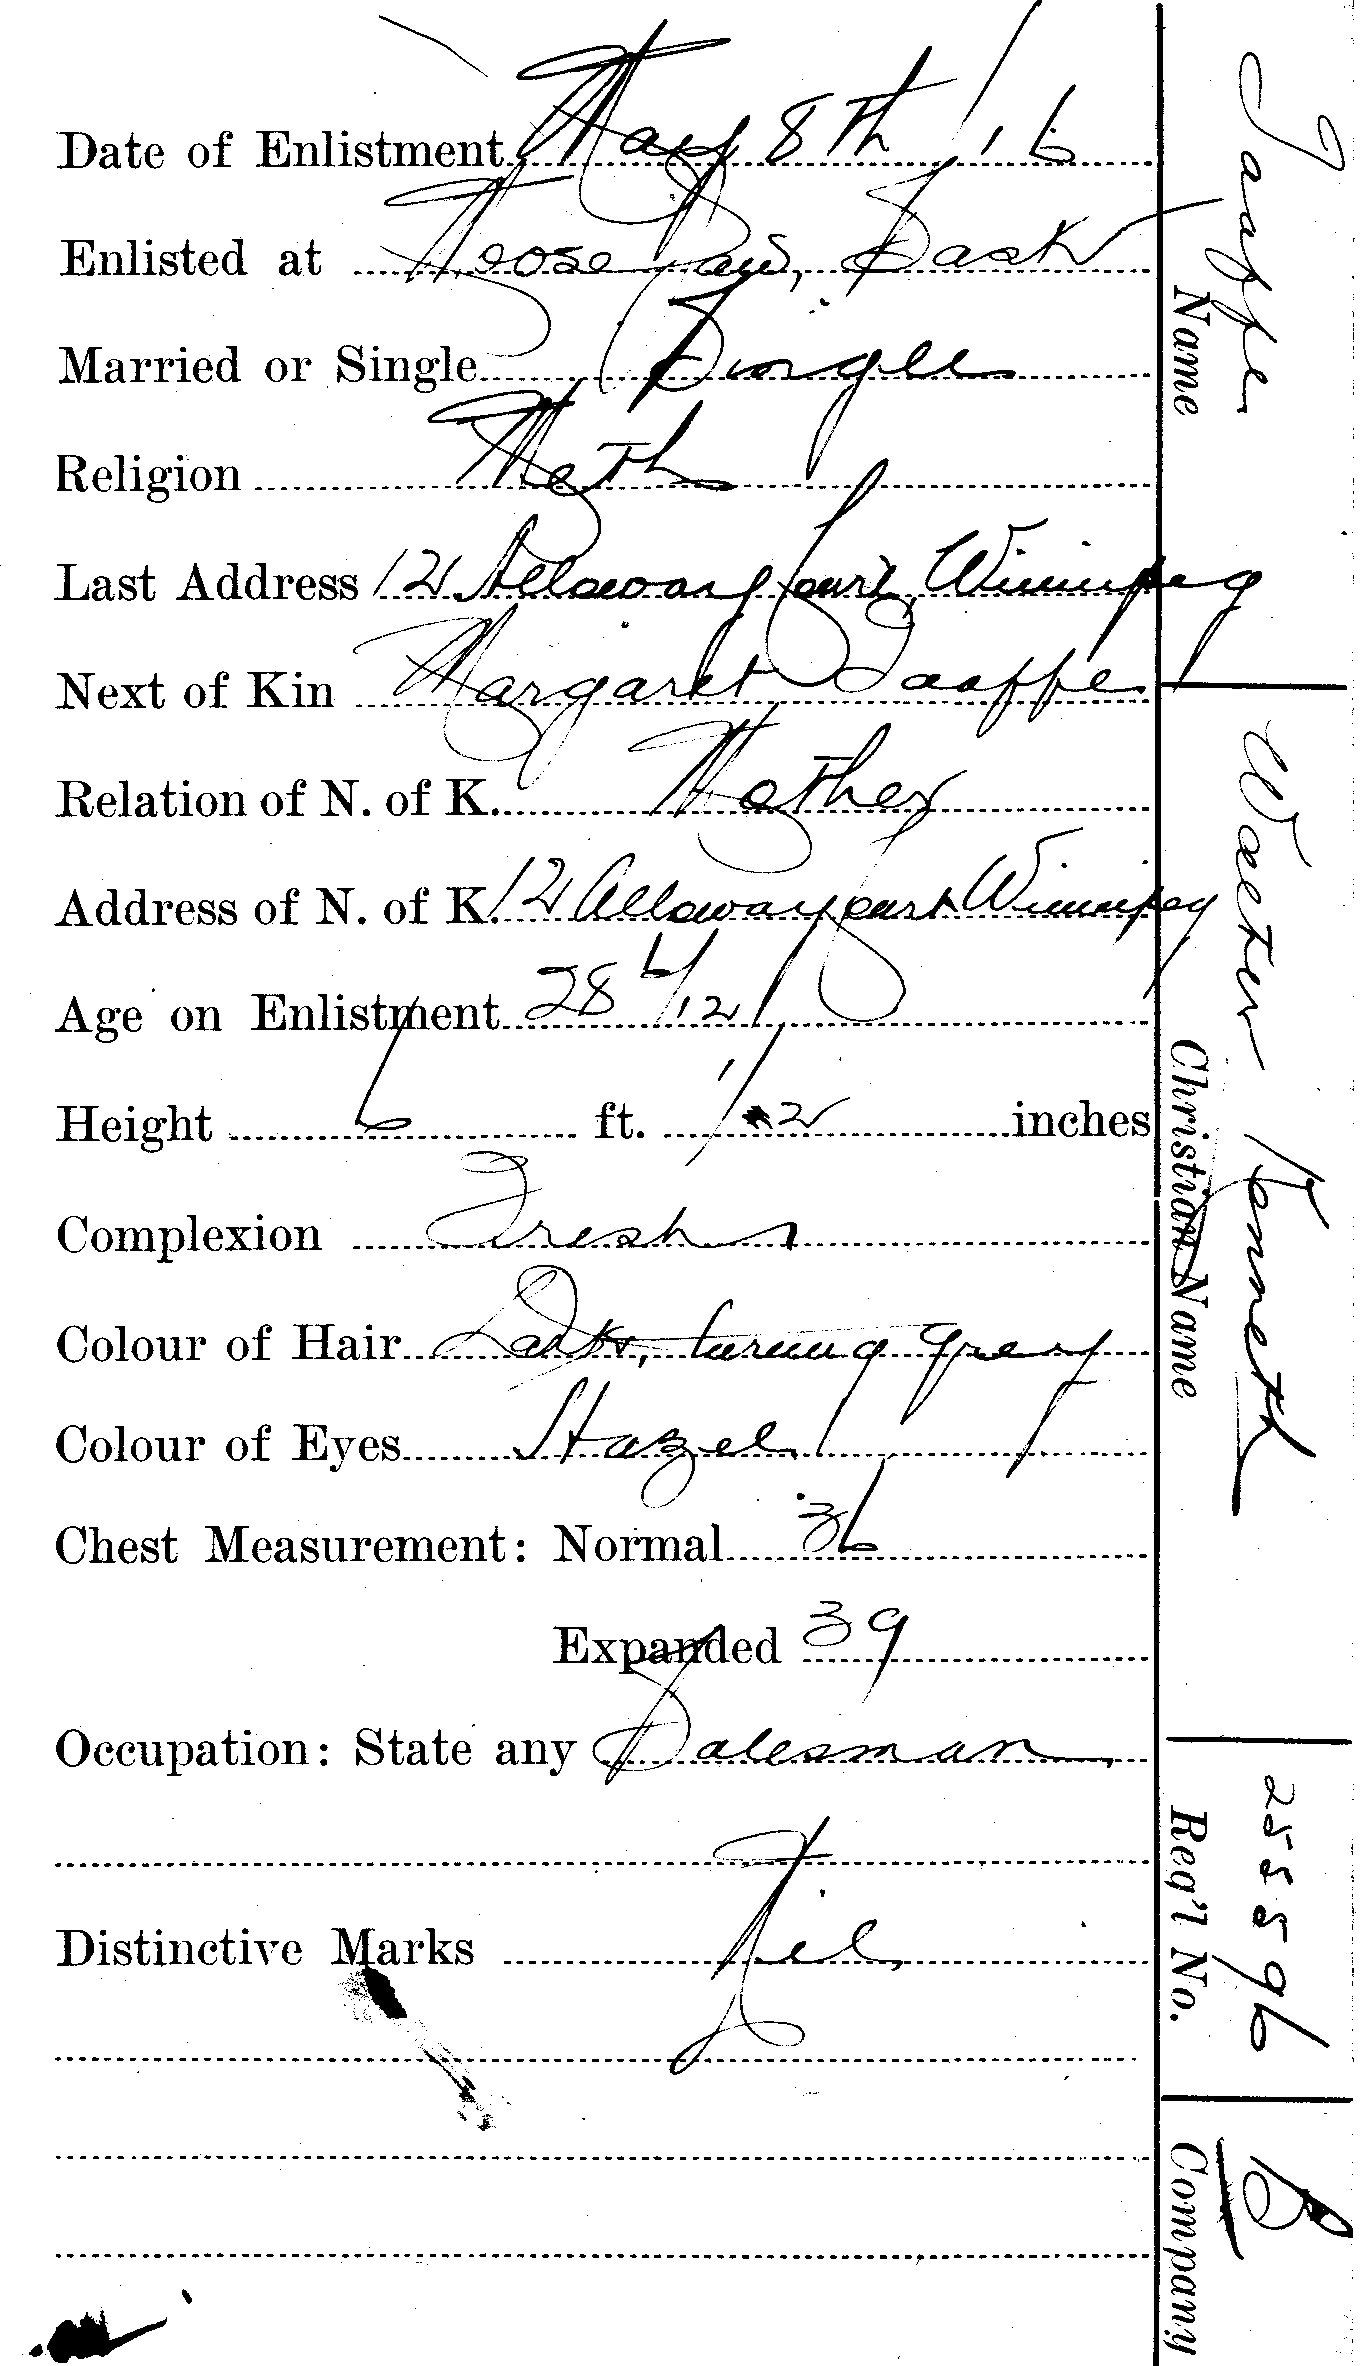 Date of Enlistment May 8th / 16
Enlisted at Moose Jaw, Sask
Married or Single Single
Religion Meth
Last Address 12 Alloway Court, Winnipeg
Next of Kin Margaret Taaffe
Relation of N. of K. Mother
Address of N. of K. 12 Alloway Court Winnipeg
Age on Enlistment 28 6/12
Height 6 ft. 1/2 inches
Complexion Fresh
Colour of Hair Dark, turning grey
Colour of Eyes Hazel
Chest Measurement: Normal 36
Expanded 39
Occupation: State any Salesman
Distinctive Marks Nil
Taaffe
Name
Walter Kenneth
Christian Name
255596
Reg'l No.
B
Company